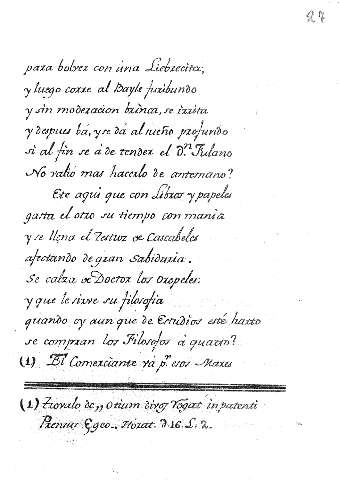 27
para bolver con una Liebrecita;
y luego corre al Bayle furibundo
y sin moderacion brinca, se irrita
y despues bá, y se dá al sueño profundo
si al fin se á de tender el D.n Fulano
No valió mas hacerlo de antemano?
Ete aqui que con Libros y papeles
gasta el otro su tiempo con mania
y se llena el Testuz de Cascabeles
afectando de gran Sabiduria.
Se calza de Doctor los Oropeles
y que le sirve su filosofia
quando oy aun que de Estudios esté harto
se compran los Filosofos á quarto?
(1) El Comerciante va p.r esos Mares
(1) de,, Otium divos Rogat in patenti
Prensus Egeo. Horat. 16. L. 2.